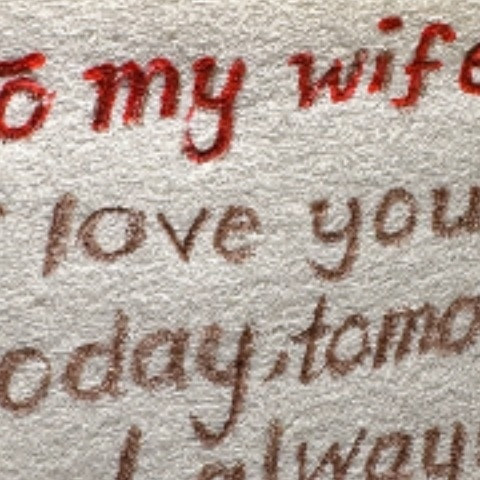 To my wife
I love you
today, tomo
always